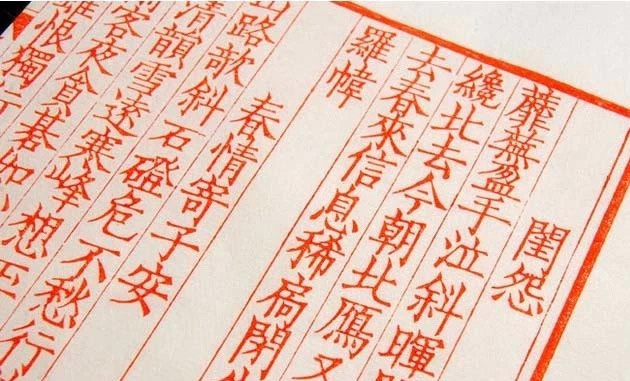 閨怨
蘼蕪盈手泣斜暉
纔北去今朝北鴈又
去春來信息稀扃閉
羅幃
春情寄子安
山路欹斜石磴危不愁行
清韻雪遠寒峰想玉
客夜貪碁如
恨獨行